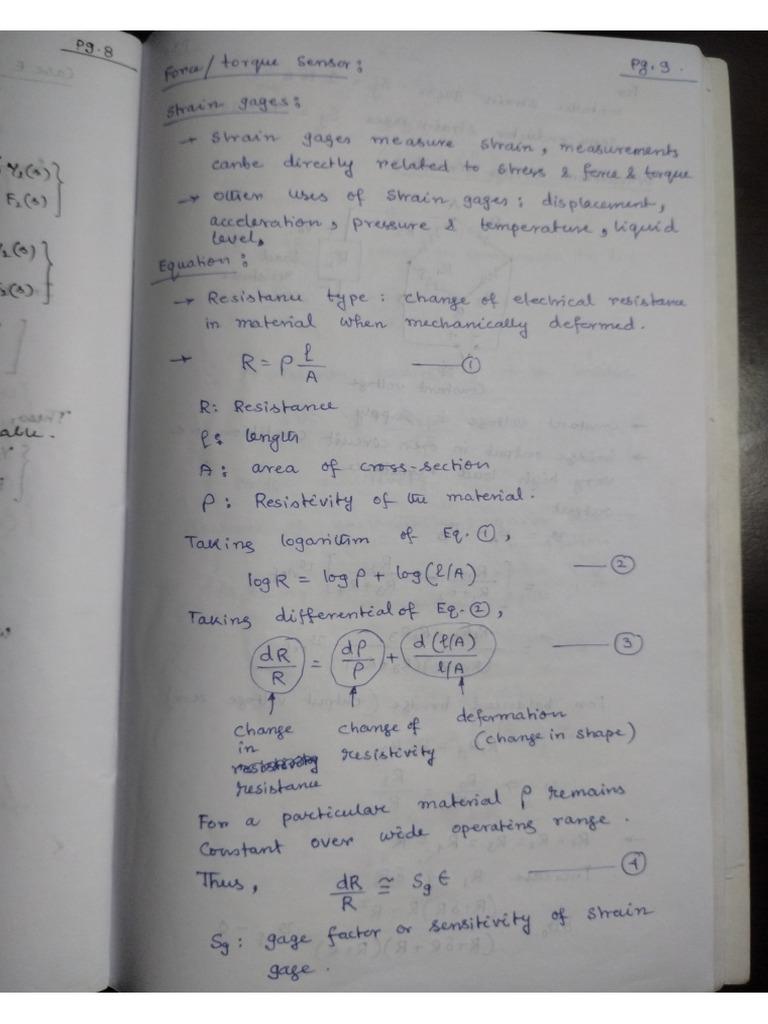 Pg.8
Y₂(s)
F₂(s)
₂(s)
₂(s)
able.
Force/torque Sensor:
Pg.9.
Strain gages:
→ Strain gages measure strain, measurements
canbe directly related to stress & force & torque
→ Other uses of Strain gages: displacement,
acceleration, pressure & temperature, liquid
level,
Equation:
→ Resistance type: change of electrical resistance
in material when mechanically deformed.
→ R = ρ l/A —— ①
R: Resistance
l: length
A: area of cross-section
ρ: Resistivity of the material.
Taking logarithm of Eq. ①,
log R = log ρ + log(l/A) —— ②
Taking differential of Eq. ②,
dR/R = dρ/ρ + d(l/A)/(l/A) —— ③
change change of deformation
in resistivity (change in shape)
resistivity
resistance
For a particular material ρ remains
Constant over wide operating range.
Thus, dR/R ≅ Sg ϵ —— ④
Sg: gage factor or sensitivity of strain
gage.